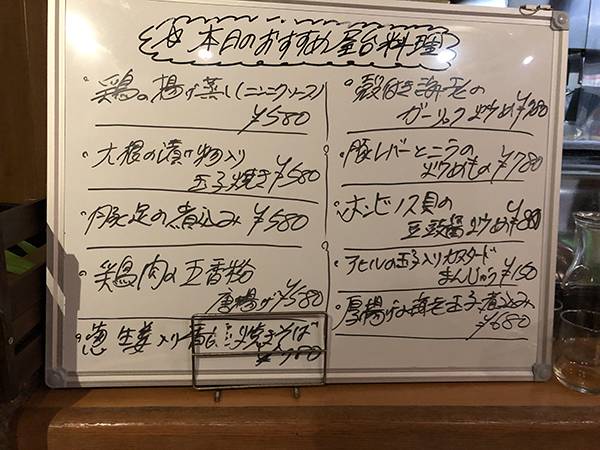 本日のおすすめ屋台料理
鶏の揚げ蒸し(ニンニクソース)
¥580
大根の漬け物入り
玉子焼き ¥580
豚足の煮込み ¥580
鶏肉の五香粉
唐揚げ ¥580
葱 生姜入り
焼きそば
¥780
殻付き海老の
ガーリック炒め
豚レバーとニラの
炒めもの ¥780
ホンビノス貝の
豆豉醤炒め
アヒルの玉子入りカスタード
まんじゅう ¥150
厚揚げ海老玉子煮込み
¥680